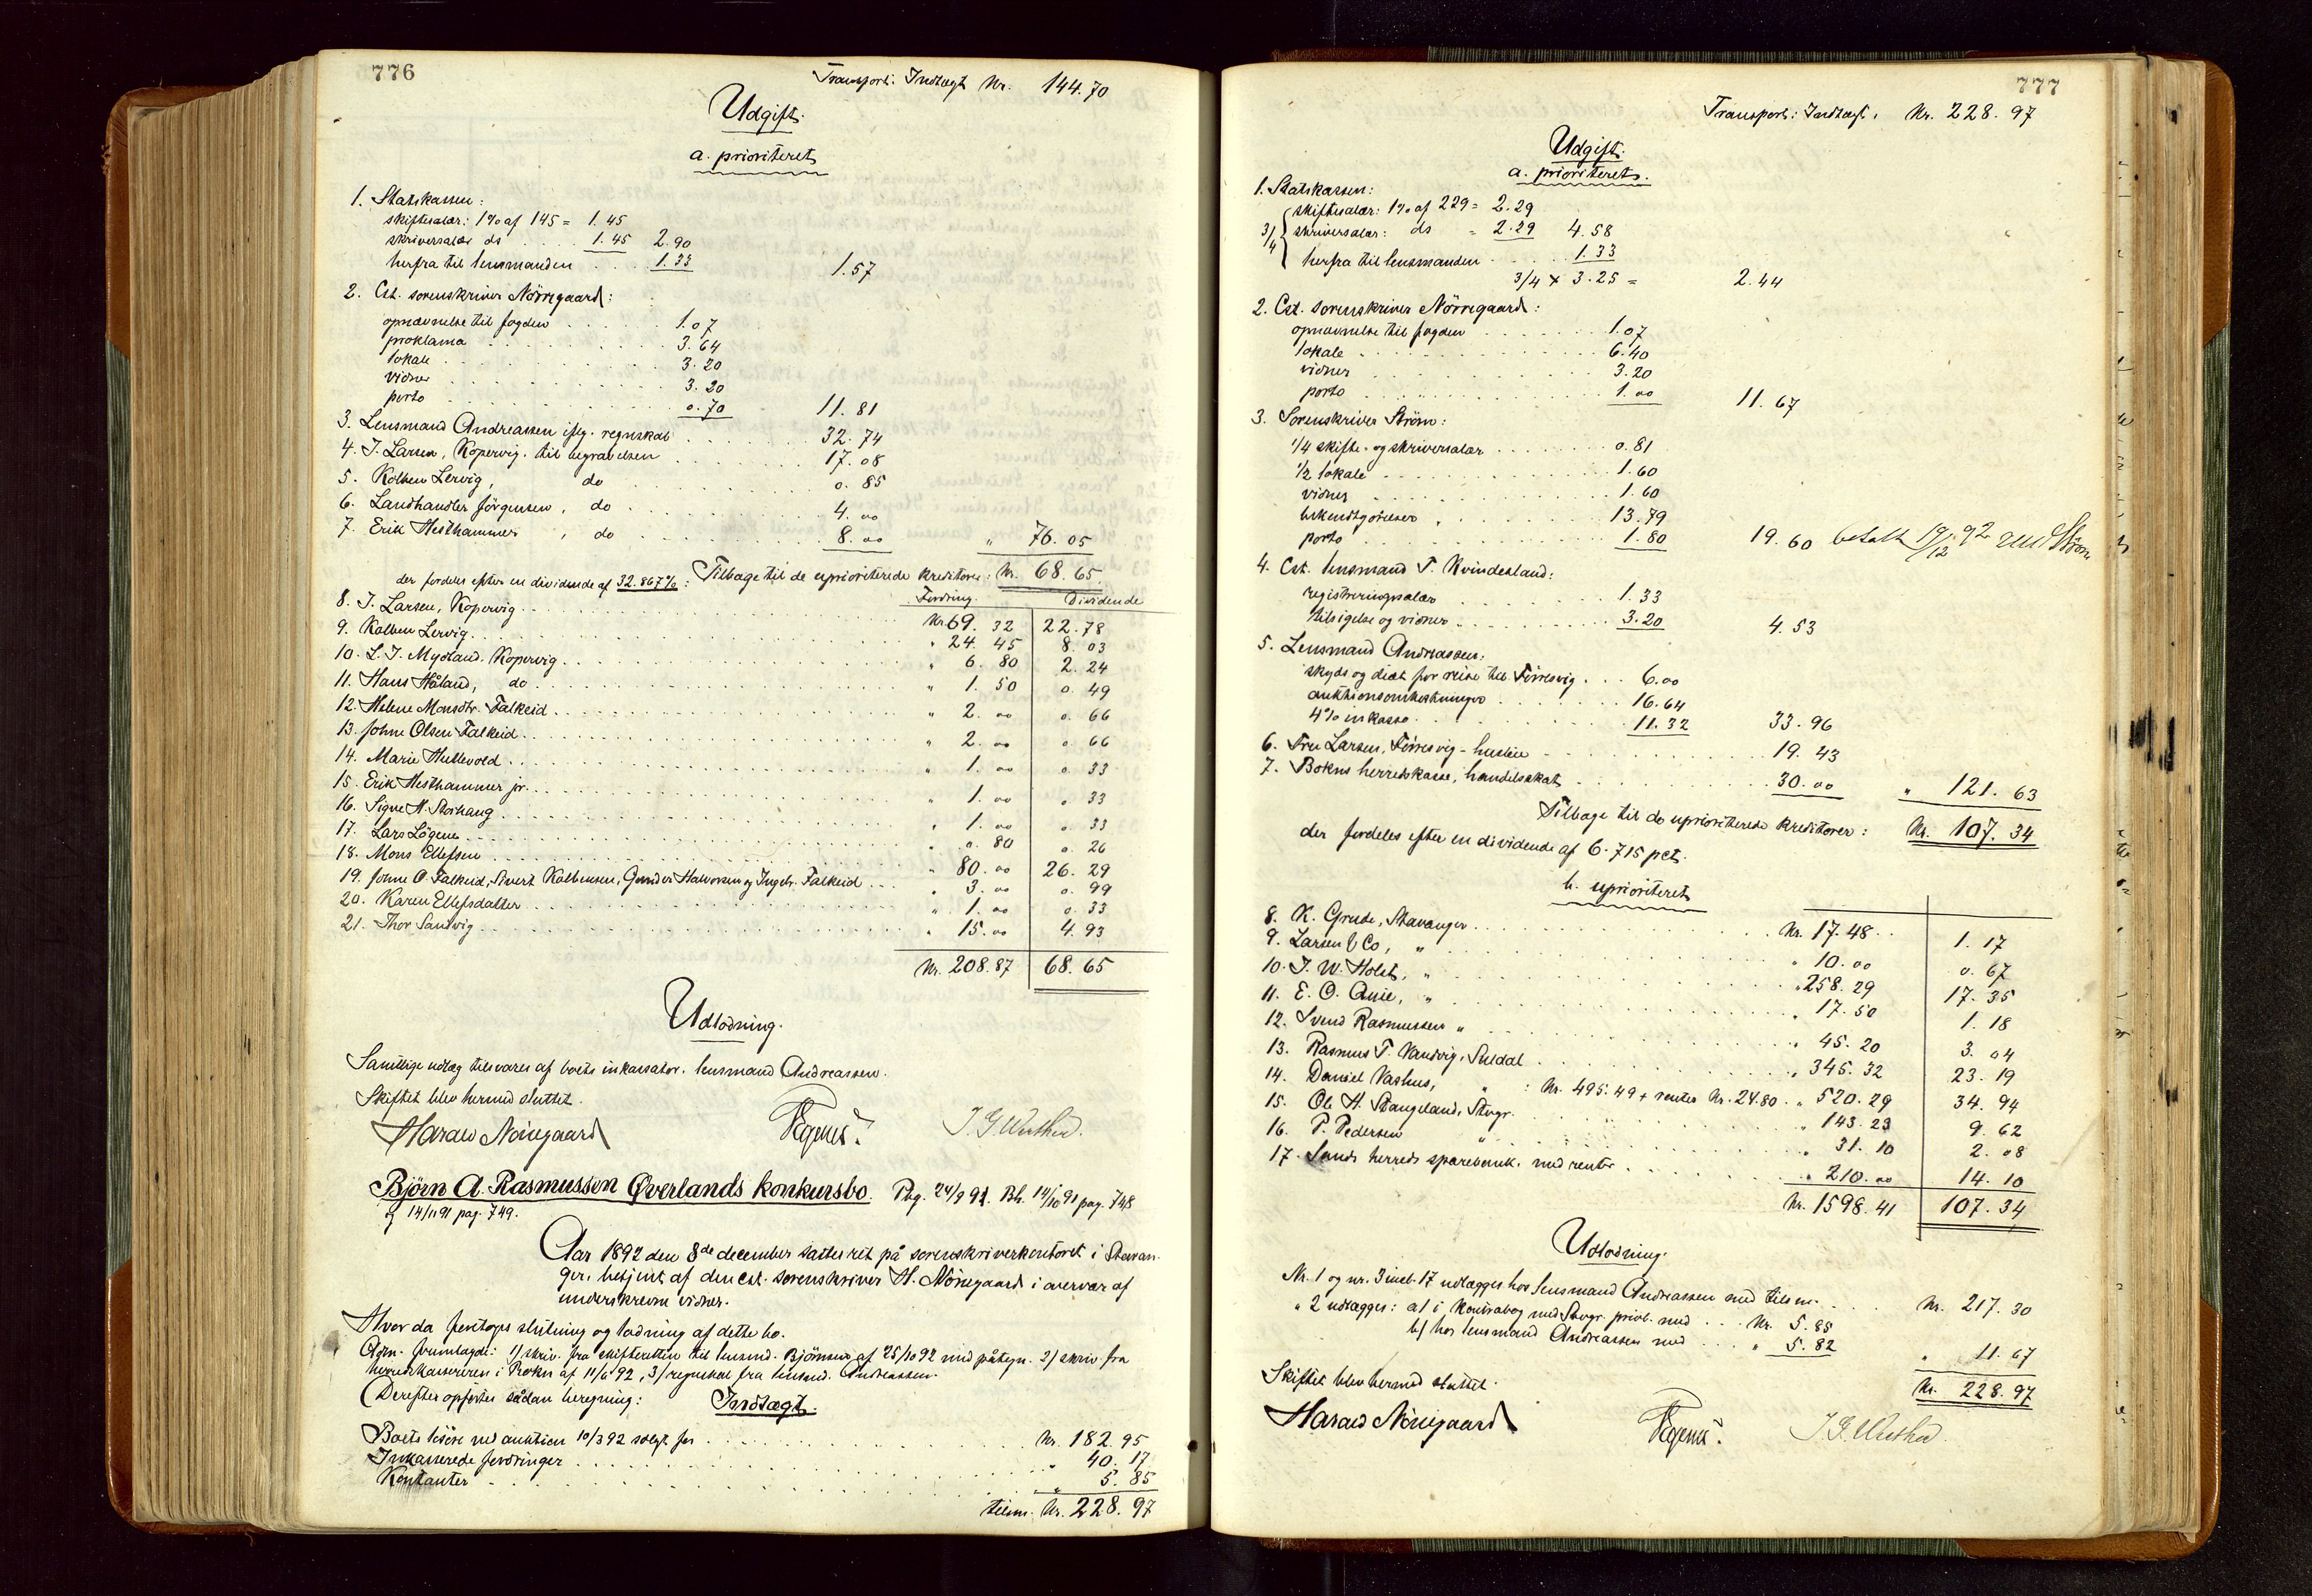 776
Transport: Indtægt Kr. 144.70
Udgift.
a. prioriteret
1. Statskassen:
skiftesalær: 1% af 145 = 1.45
skriversalær do . . . . 1.45 2.90
herfra til lensmanden . . . 1.33 1.57
2. Cst. sorenskriver Nörregaard:
opnævnelse til fogden . . . . . 1.07
proklama . . . . . . . . . 3.64
lokale . . . . . . . . . . 3.20
vidner . . . . . . . . . . 3.20
porto . . . . . . . . . . 0.70 11.81
3. Lensmand Andreassen iflg. regnskab . . . . . . 32.74
4. J. Larsen, Kopervig. til begravelsen . . . . . . 17.08
5. Kolben Lervig, do . . . . . . . . 0.85
6. Landhandler Jörgensen, do . . . . . . . 4.00
7. Erik Hesthammer, do . . . . . . . . 8.00 " 76.05
Tilbage til de uprioriterede kreditorer: Kr. 68.65
der fordeles efter en dividende af 32.867%:
Fordring. Dividende
8. J. Larsen, Kopervig . . . Kr. 69.32 22.78
9. Kolben Lervig . . . " 24.45 8.03
10. L. J. Mydland. Kopervig . . . " 6.80 2.24
11. Hans Håland, do . . . " 1.50 0.49
12. Helene Monsdtr. Falkeid . . . " 2.00 0.66
13. Johne Olsen Falkeid . . . " 2.00 0.66
14. Marie Hettevold . . . " 1.00 0.33
15. Erik Hesthammer jr. . . . " 1.00 0.33
16. Signe H. Storhaug . . . " 1.00 0.33
17. Lars Lögene . . . " 0.80 0.26
18. Mons Ellefsen . . . " 80.00 26.29
19. Johne O. Falkeid, Sivert Kolbensen, Gunder Halvorsen og Ingebr. Falkeid . . . " 3.00 0.99
20. Karen Ellefsdatter . . . " 1.00 0.33
21. Thor Sandvig . . . " 15.00 4.93
Kr. 208.87 68.65
Udlodning.
Samtlige udlæg tilsvares af boets inkassator. lensmand Andreassen.
Skiftet blev hermed sluttet.
Harald Nörregaard J. G. Wuthe.
Björn A. Rasmussen Øverlands konkursbo. Reg. 24/9 91. Bh. 14/10 91 pag. 748
og 14/11 91 pag. 749.
Aar 1892 den 8de december sattes ret på sorenskriverkontoret i Stavan-
ger, betjent af den cst. sorenskriver H. Nörregaard i overvær af
underskrevne vidner.
Hvor da foretoges slutning og lodning af dette bo.
Adm. fremlagde: 1/ skriv. fra skifteretten til lensmd. Björnsen af 25/10 92 med påtegn. 2/ skriv fra
herredskassereren i Bokn af 11/6 92, 3/ regnskab fra lensmd. Andreassen.
Derefter opførtes sådan beregning:
Indtægt.
Boets lösöre ved auktion 10/3 92 solgt for . . . Kr. 182.95
Inkasserede fordringer . . . " 40.17
Kontanter . . . " 5.85
tilsm. Kr. 228.97
777
Transport: Indtægt, Kr. 228.97
Udgift.
a. prioriteret.
1. Statskassen:
skiftesalær: 1% af 229 = 2.29
3/4 skriversalær: do = 2.29 4.58
herfra til lensmanden . . . 1.33
3/4 × 3.25 = 2.44
2. Cst. sorenskriver Nörregaard:
opnævnelse til fogden . . . 1.07
lokale . . . 6.40
vidner . . . 3.20
porto . . . 1.00 11.67
3. Sorenskriver Ström:
1/4 skifte- og skriversalær . . . 0.81
1/2 lokale . . . 1.60
vidner . . . 1.60
bekendtgörelser . . . 13.79
porto . . . 1.80 19.60 betalt 19/12 92 Ström
4. Cst. lensmand T. Kvindesland:
registreringssalær . . . 1.33
tilsigelse og vidner . . . 3.20 4.53
5. Lensmand Andreassen:
skyds og diæt for reise til Förresvig . . . 6.00
auktionsomkostninger . . . 16.64
4% inkasso . . . 11.32 33.96
6. Fru Larsen, Förresvig - husleie . . . 19.43
7. Bokns herredskasse, handelsskat . . . 30.00 " 121.63
Tilbage til de uprioriterede kreditorer: Kr. 107.34
der fordeles efter en dividende af 6.715 pct.
b. uprioriteret
8. K. Grude, Stavanger . . . Kr. 17.48 1.17
9. Larsen & Co, " . . . " 10.00 0.67
10. J. W. Holst, " . . . " 258.29 17.35
11. E. O. " . . . " 17.50 1.18
12. Svend Rasmussen " . . . " 45.20 3.04
13. Rasmus T. Vandvig, Suldal . . . " 345.32 23.19
14. Daniel Vashus, " : Kr. 495.49 + renter Kr. 24.80 . " 520.29 34.94
15. Ole H. Stangeland, Stvgr. . . . " 143.23 9.62
16. P. Pedersen " . . . " 31.10 2.08
17. Sands herreds sparebank. med renter . . . " 210.00 14.10
Kr. 1598.41 107.34
Udlodning.
Nr. 1 og nr. 3 incl. 17 udlægges hos lensmand Andreassen med tilsm. . . . Kr. 217.30
" 2 udlægges: a/ i kontrabog med Stvgr. privb. med . . . Kr. 5.85
b/ hos lensmand Andreassen med . . . " 5.82 " 11.67
Kr. 228.97
Skiftet blev hermed sluttet.
Harald Nörregaard J. G. Wuthe.